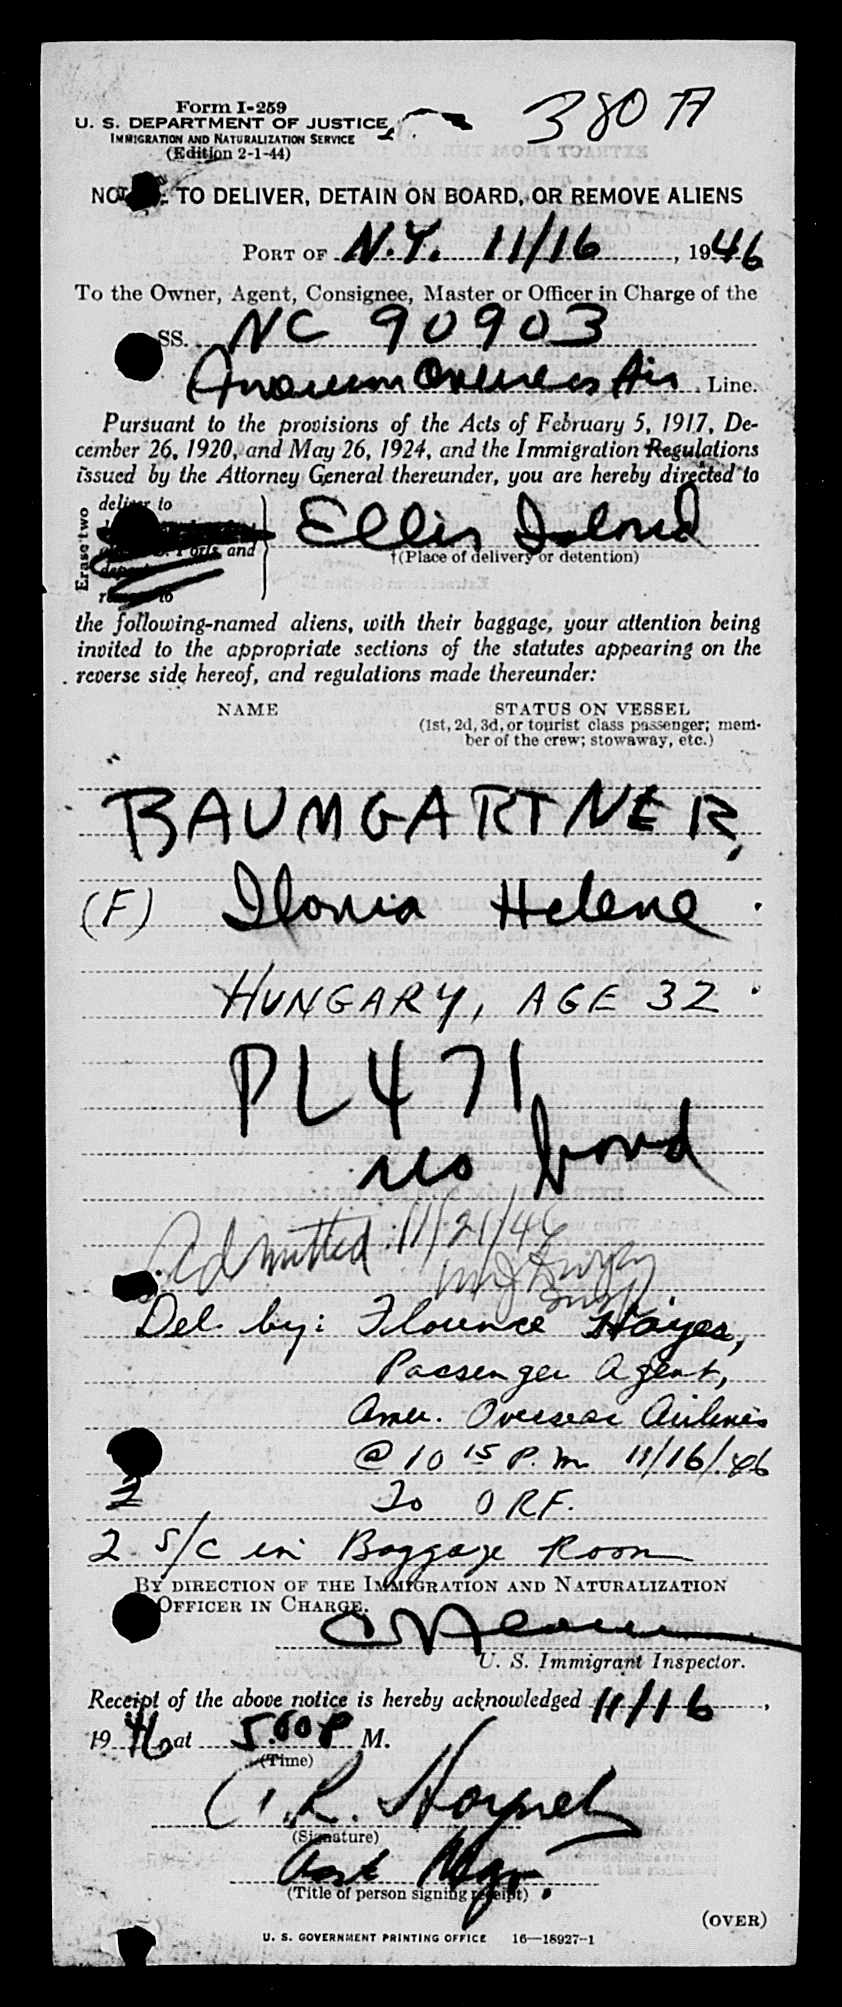 380 A
Form I-259
U. S. DEPARTMENT OF JUSTICE
IMMIGRATION AND NATURALIZATION SERVICE
(Edition 2-1-44)
TO DELIVER, DETAIN ON BOARD, OR REMOVE ALIENS
PORT OF N.Y. 11/16, 1946
To the Owner, Agent, Consignee, Master or Officer in Charge of the
SS. NC 90903
American Overseas Air Line.
Pursuant to the provisions of the Acts of February 5, 1917, De-
cember 26, 1920, and May 26, 1924, and the Immigration Regulations
issued by the Attorney General thereunder, you are hereby directed to
Erase two
deliver to
Ellis Island
Ports and
†(Place of delivery or detention)
to
the following-named aliens, with their baggage, your attention being
invited to the appropriate sections of the statutes appearing on the
reverse side hereof, and regulations made thereunder:
NAME STATUS ON VESSEL
(1st, 2d, 3d, or tourist class passenger; mem-
ber of the crew; stowaway, etc.)
BAUMGARTNER,
(F) Ilonia Helene
HUNGARY, AGE 32
PL 471
no bond
Admitted 11/21/46
Del. by: Florence Hayes,
Passenger Agent,
Amer. Overseas Airlines
@ 10 15 P.m. 11/16/46
2 To O R F.
2 S/C in Baggage Room
BY DIRECTION OF THE IMMIGRATION AND NATURALIZATION
OFFICER IN CHARGE.
U. S. Immigrant Inspector.
Receipt of the above notice is hereby acknowledged 11/16,
1946 at 5:00 P M.
(Time)
(Signature)
Asst Mgr.
(Title of person signing receipt)
(OVER)
U. S. GOVERNMENT PRINTING OFFICE 16—18927-1